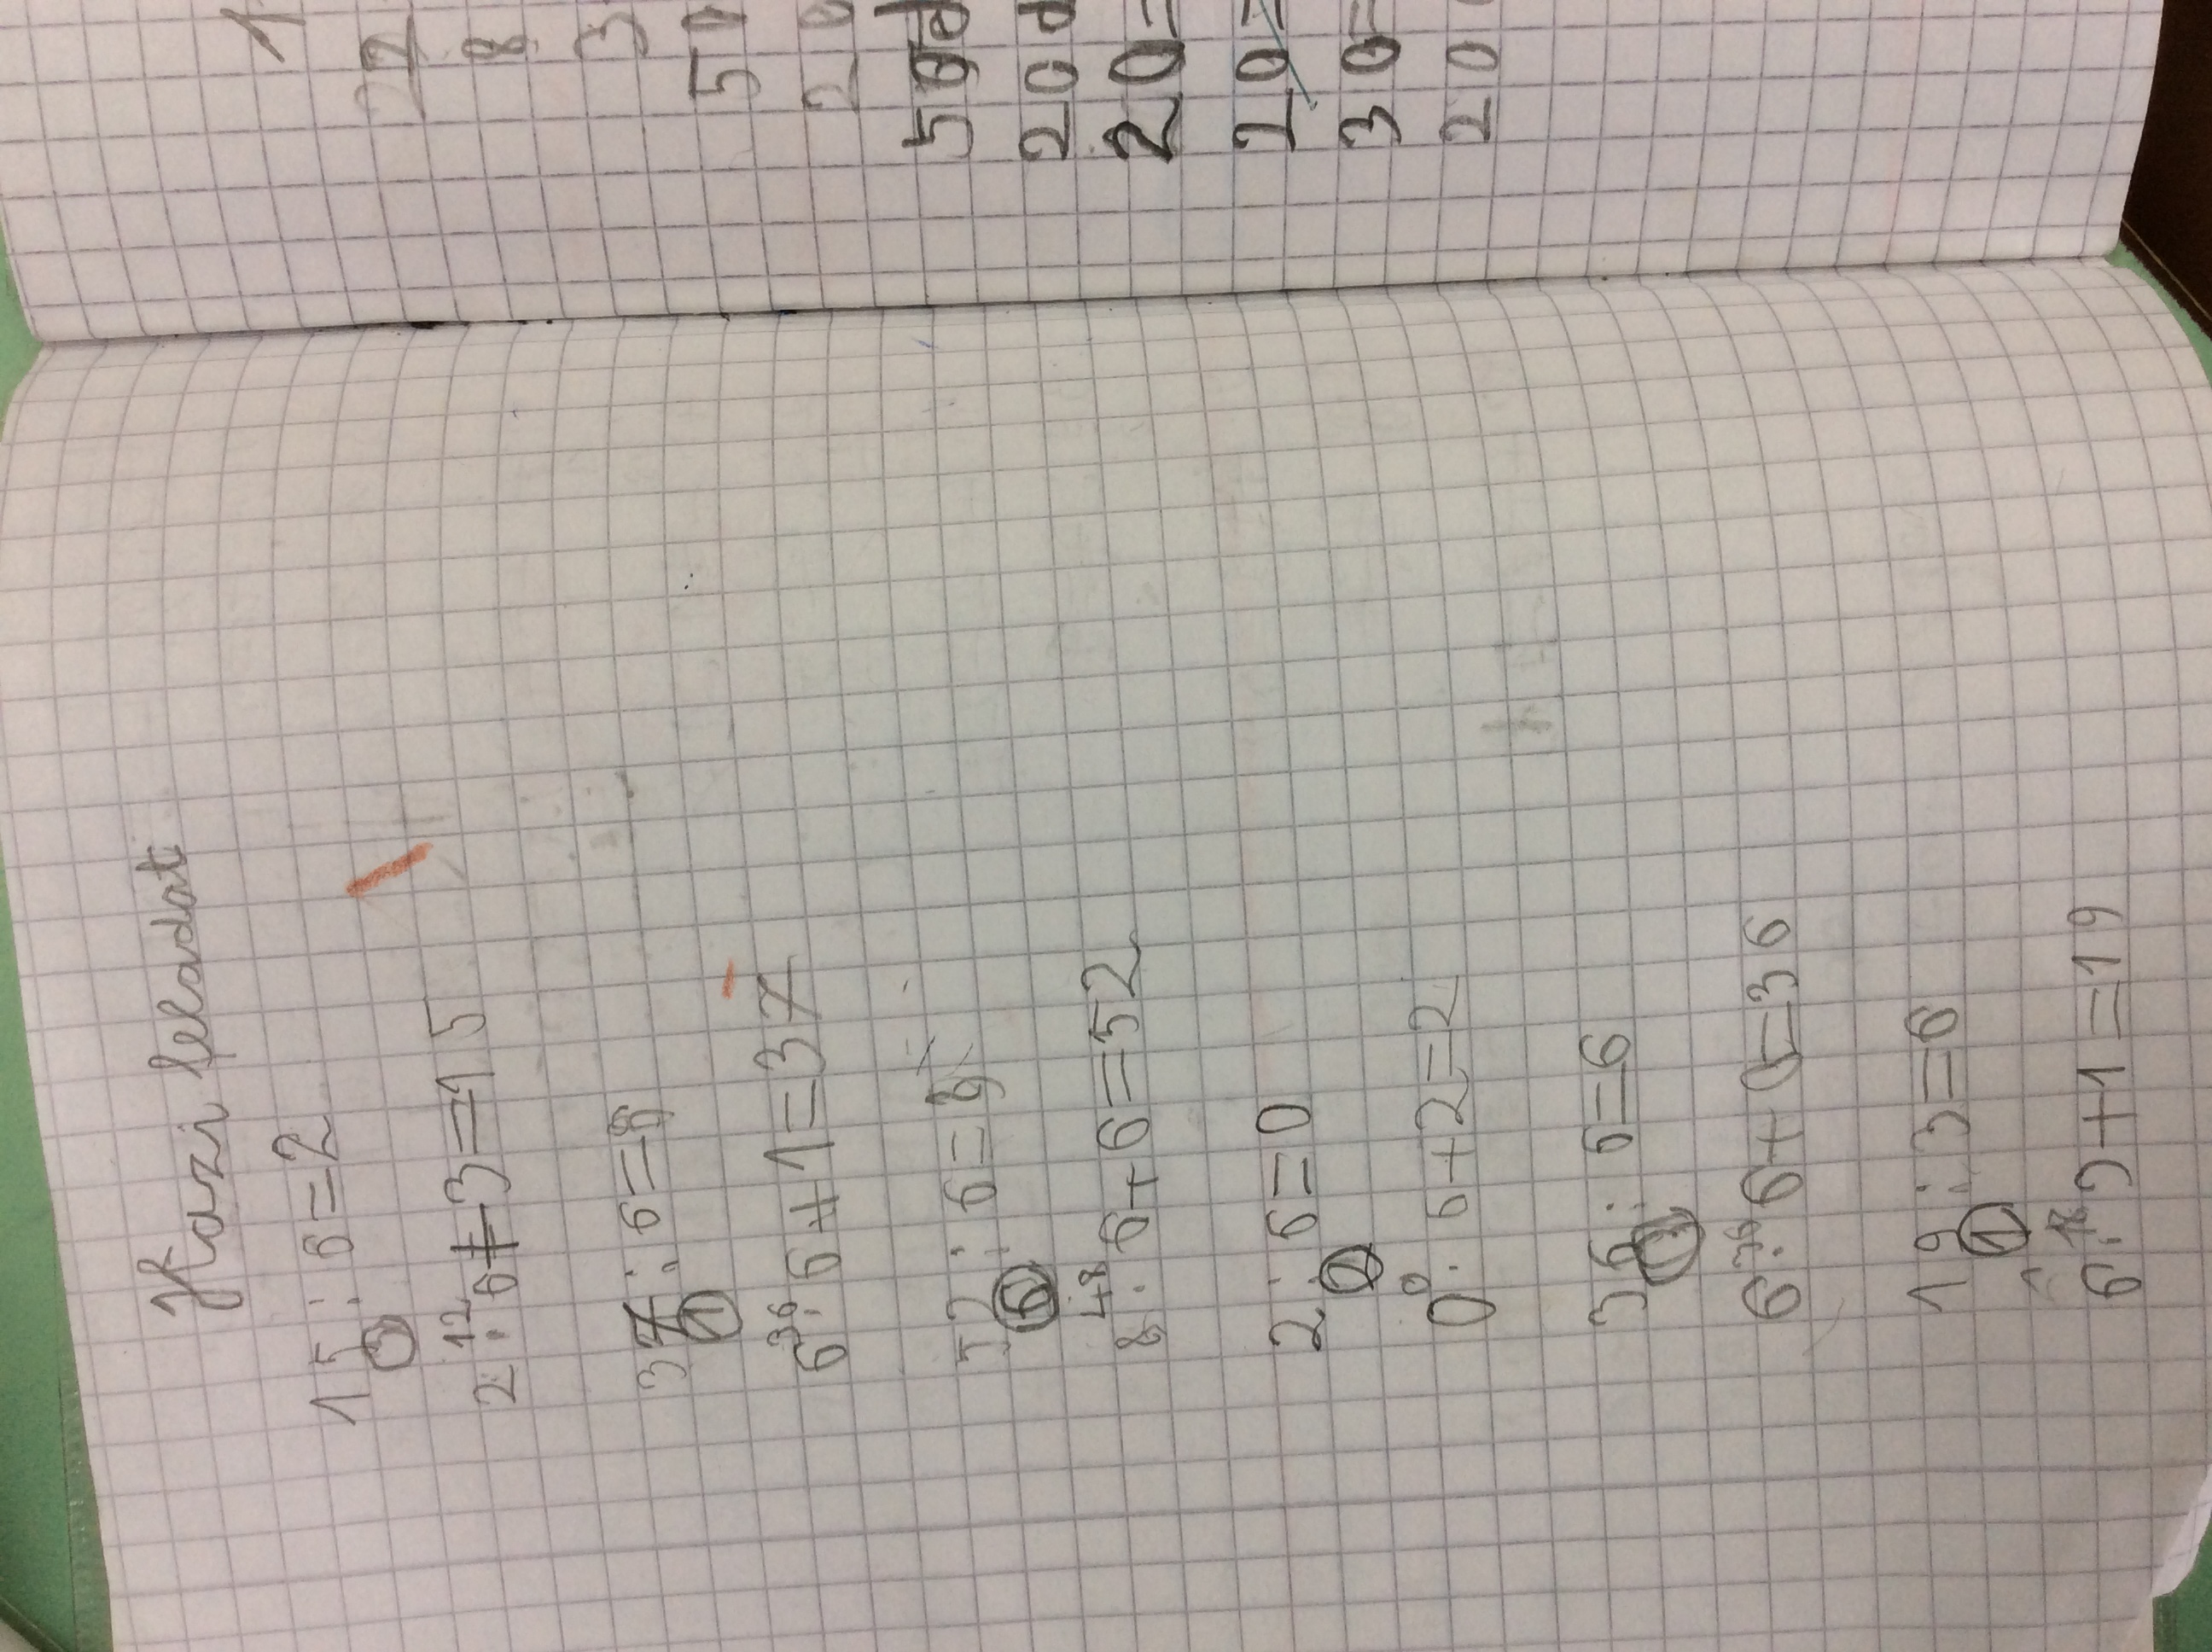 Házi feladat
15 : 6 = 2
3
12
2 · 6 + 3 = 15
37 : 6 = 6
1
36
6 · 6 + 1 = 37
52 : 6 = 8
6
48
8 · 6 + 6 = 52
2 : 6 = 0
2
0
0 · 6 + 2 = 2
36 : 6 = 6
36
6 · 6 + 0 = 36
19 : 3 = 6
1
18
6 · 3 + 1 = 19
1
22
8
3
50
20
50 d
20 d
20 =
20 =
30 =
20